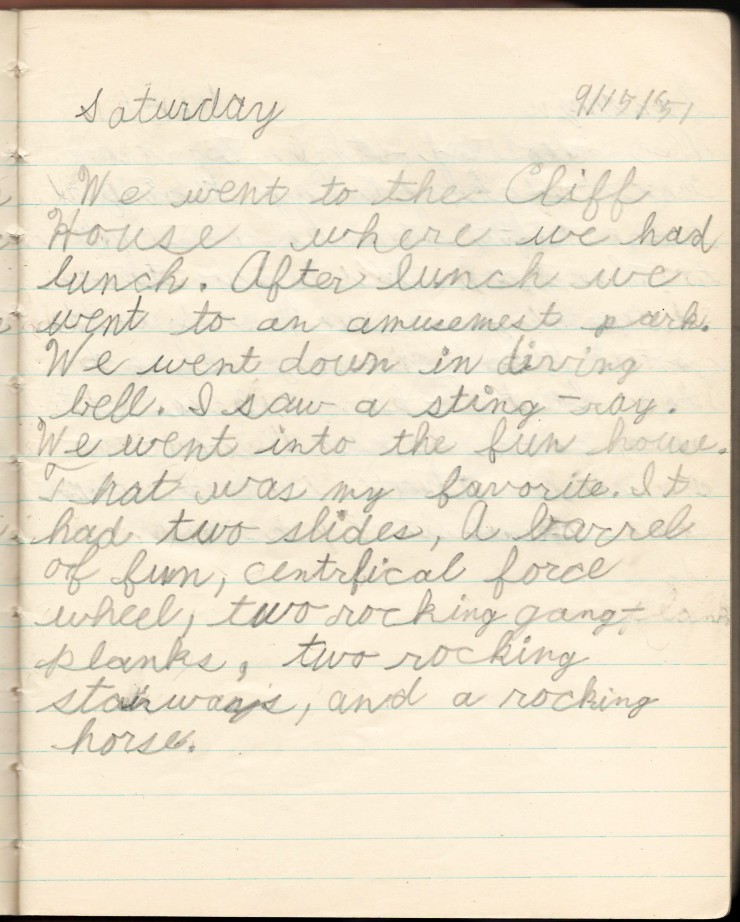 Saturday 9/15/51
We went to the Cliff
House where we had
lunch. After lunch we
went to an amusemest park.
We went down in diving
bell. I saw a sting-ray.
We went into the fun house.
That was my favorite. It
had two slides, A barrel
of fun, centrfical force
wheel, two rocking gang-
planks, two rocking
stairways, and a rocking
horse.